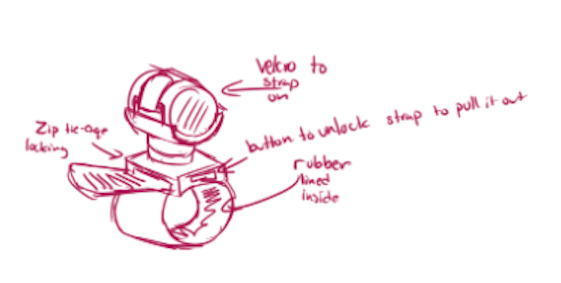 Velcro to
strap
on
Zip tie-
locking
button to unlock strap to pull it out
rubber
lined
inside